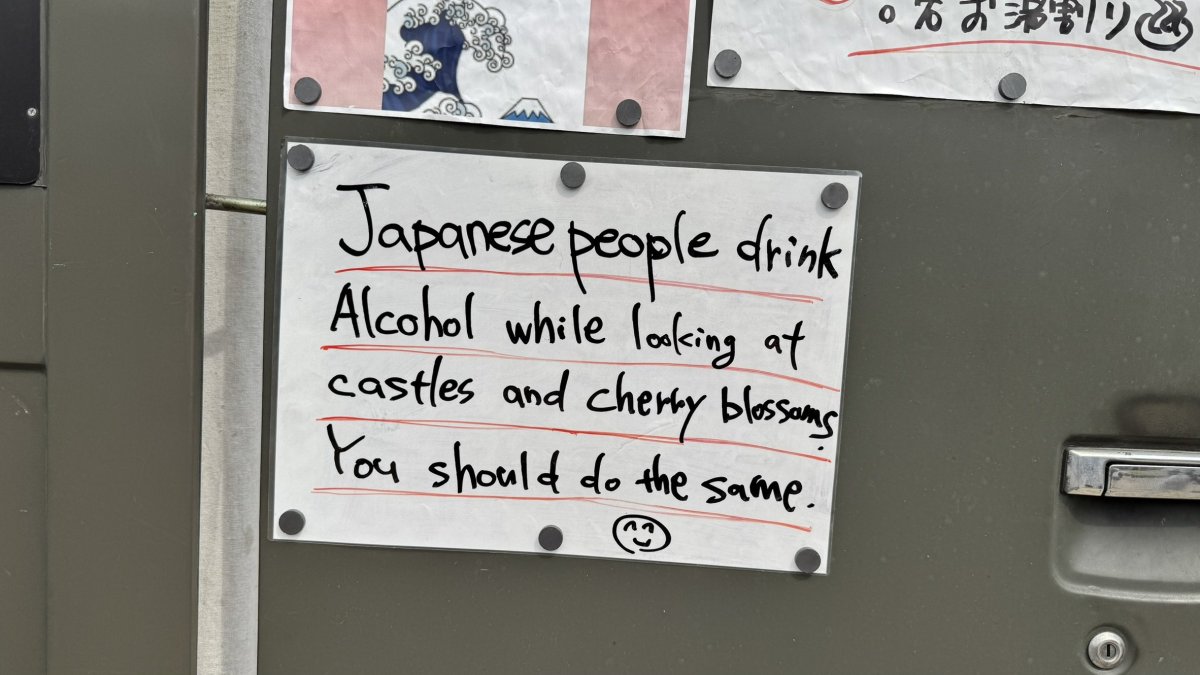 お湯割り
Japanese people drink
Alcohol while looking at
castles and cherry blossams.
You should do the same.